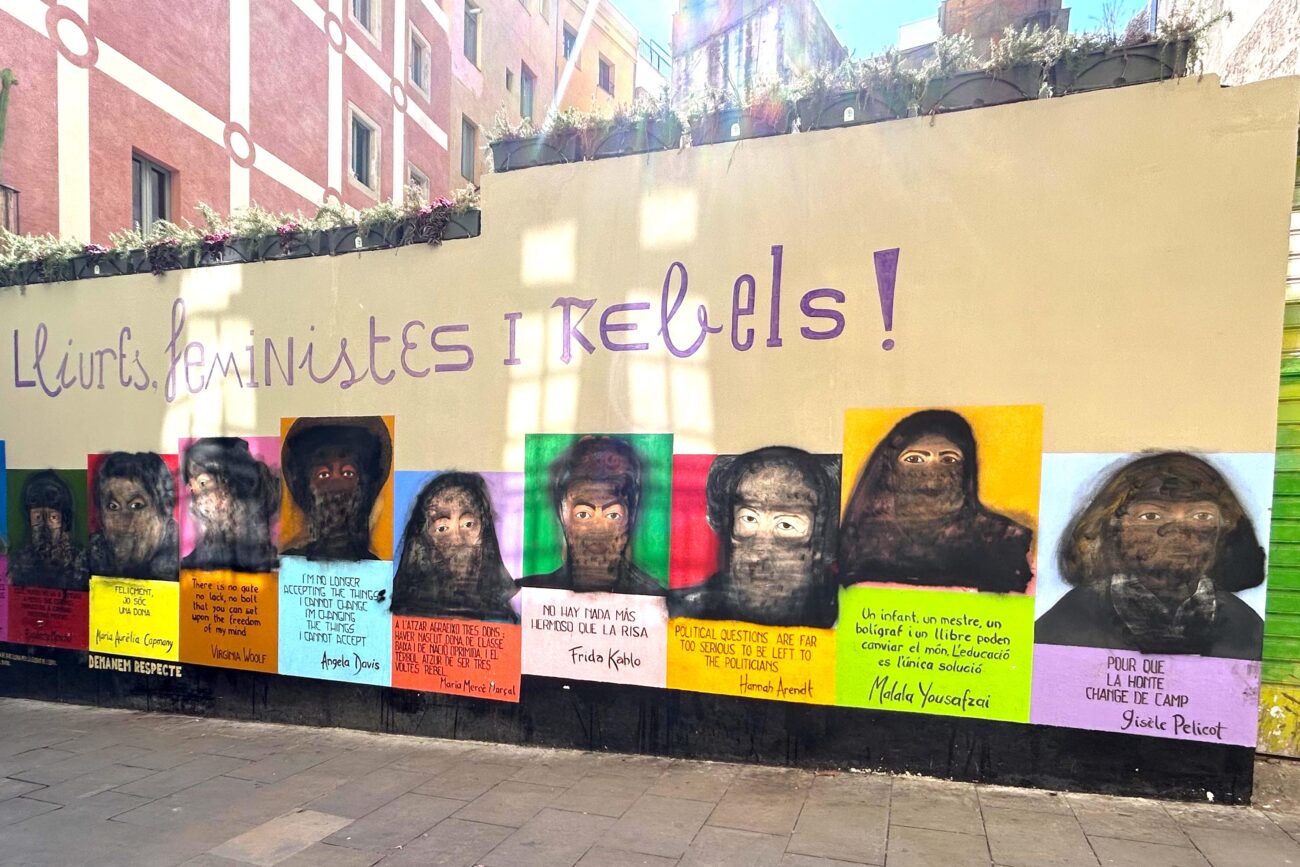 Lliures, feministes i rebels!
FELIÇMENT,
JO SÓC
UNA DONA
Maria Aurèlia Capmany
DEMANEM RESPECTE
There is no gate
no lock, no bolt
that you can set
upon the freedom
of my mind
VIRGINIA WOOLF
I'M NO LONGER
ACCEPTING THE THINGS
I CANNOT CHANGE
I'M CHANGING
THE THINGS
I CANNOT ACCEPT
Angela Davis
A L'ATZAR AGRAEIXO TRES DONS:
HAVER NASCUT DONA DE CLASSE
BAIXA I DE NACIÓ OPRIMIDA I EL
TÈRBOL ATZUR DE SER TRES
VOLTES REBEL
Maria Mercè Marçal
NO HAY NADA MÁS
HERMOSO QUE LA RISA
Frida Kahlo
POLITICAL QUESTIONS ARE FAR
TOO SERIOUS TO BE LEFT TO
THE POLITICIANS
Hannah Arendt
Un infant, un mestre, un
bolígraf i un llibre poden
canviar el món. L'educació
es l'única solució
Malala Yousafzai
POUR QUE
LA HONTE
CHANGE DE CAMP
Gisèle Pelicot